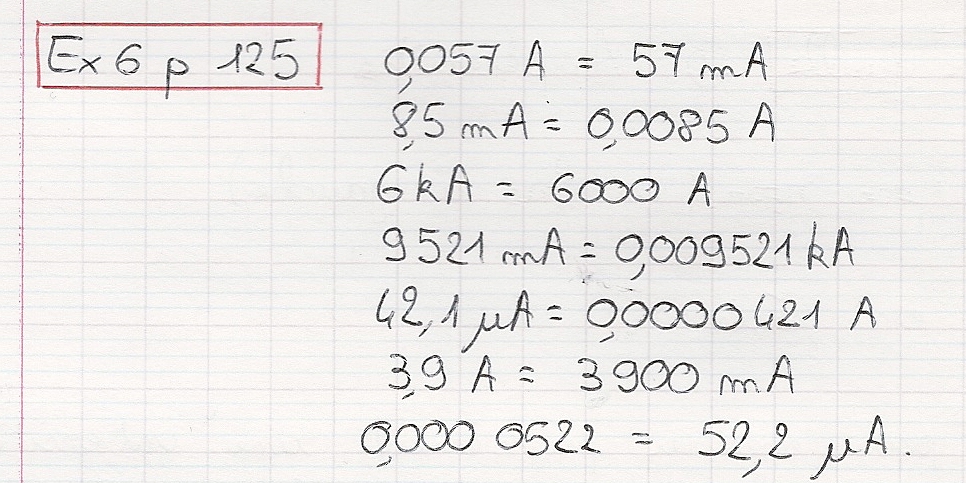 Ex 6 p 125
0,057 A = 57 mA
8,5 mA = 0,0085 A
6 kA = 6000 A
9521 mA = 0,009521 kA
42,1 µA = 0,0000421 A
3,9 A = 3900 mA
0,000 0522 = 52,2 µA.